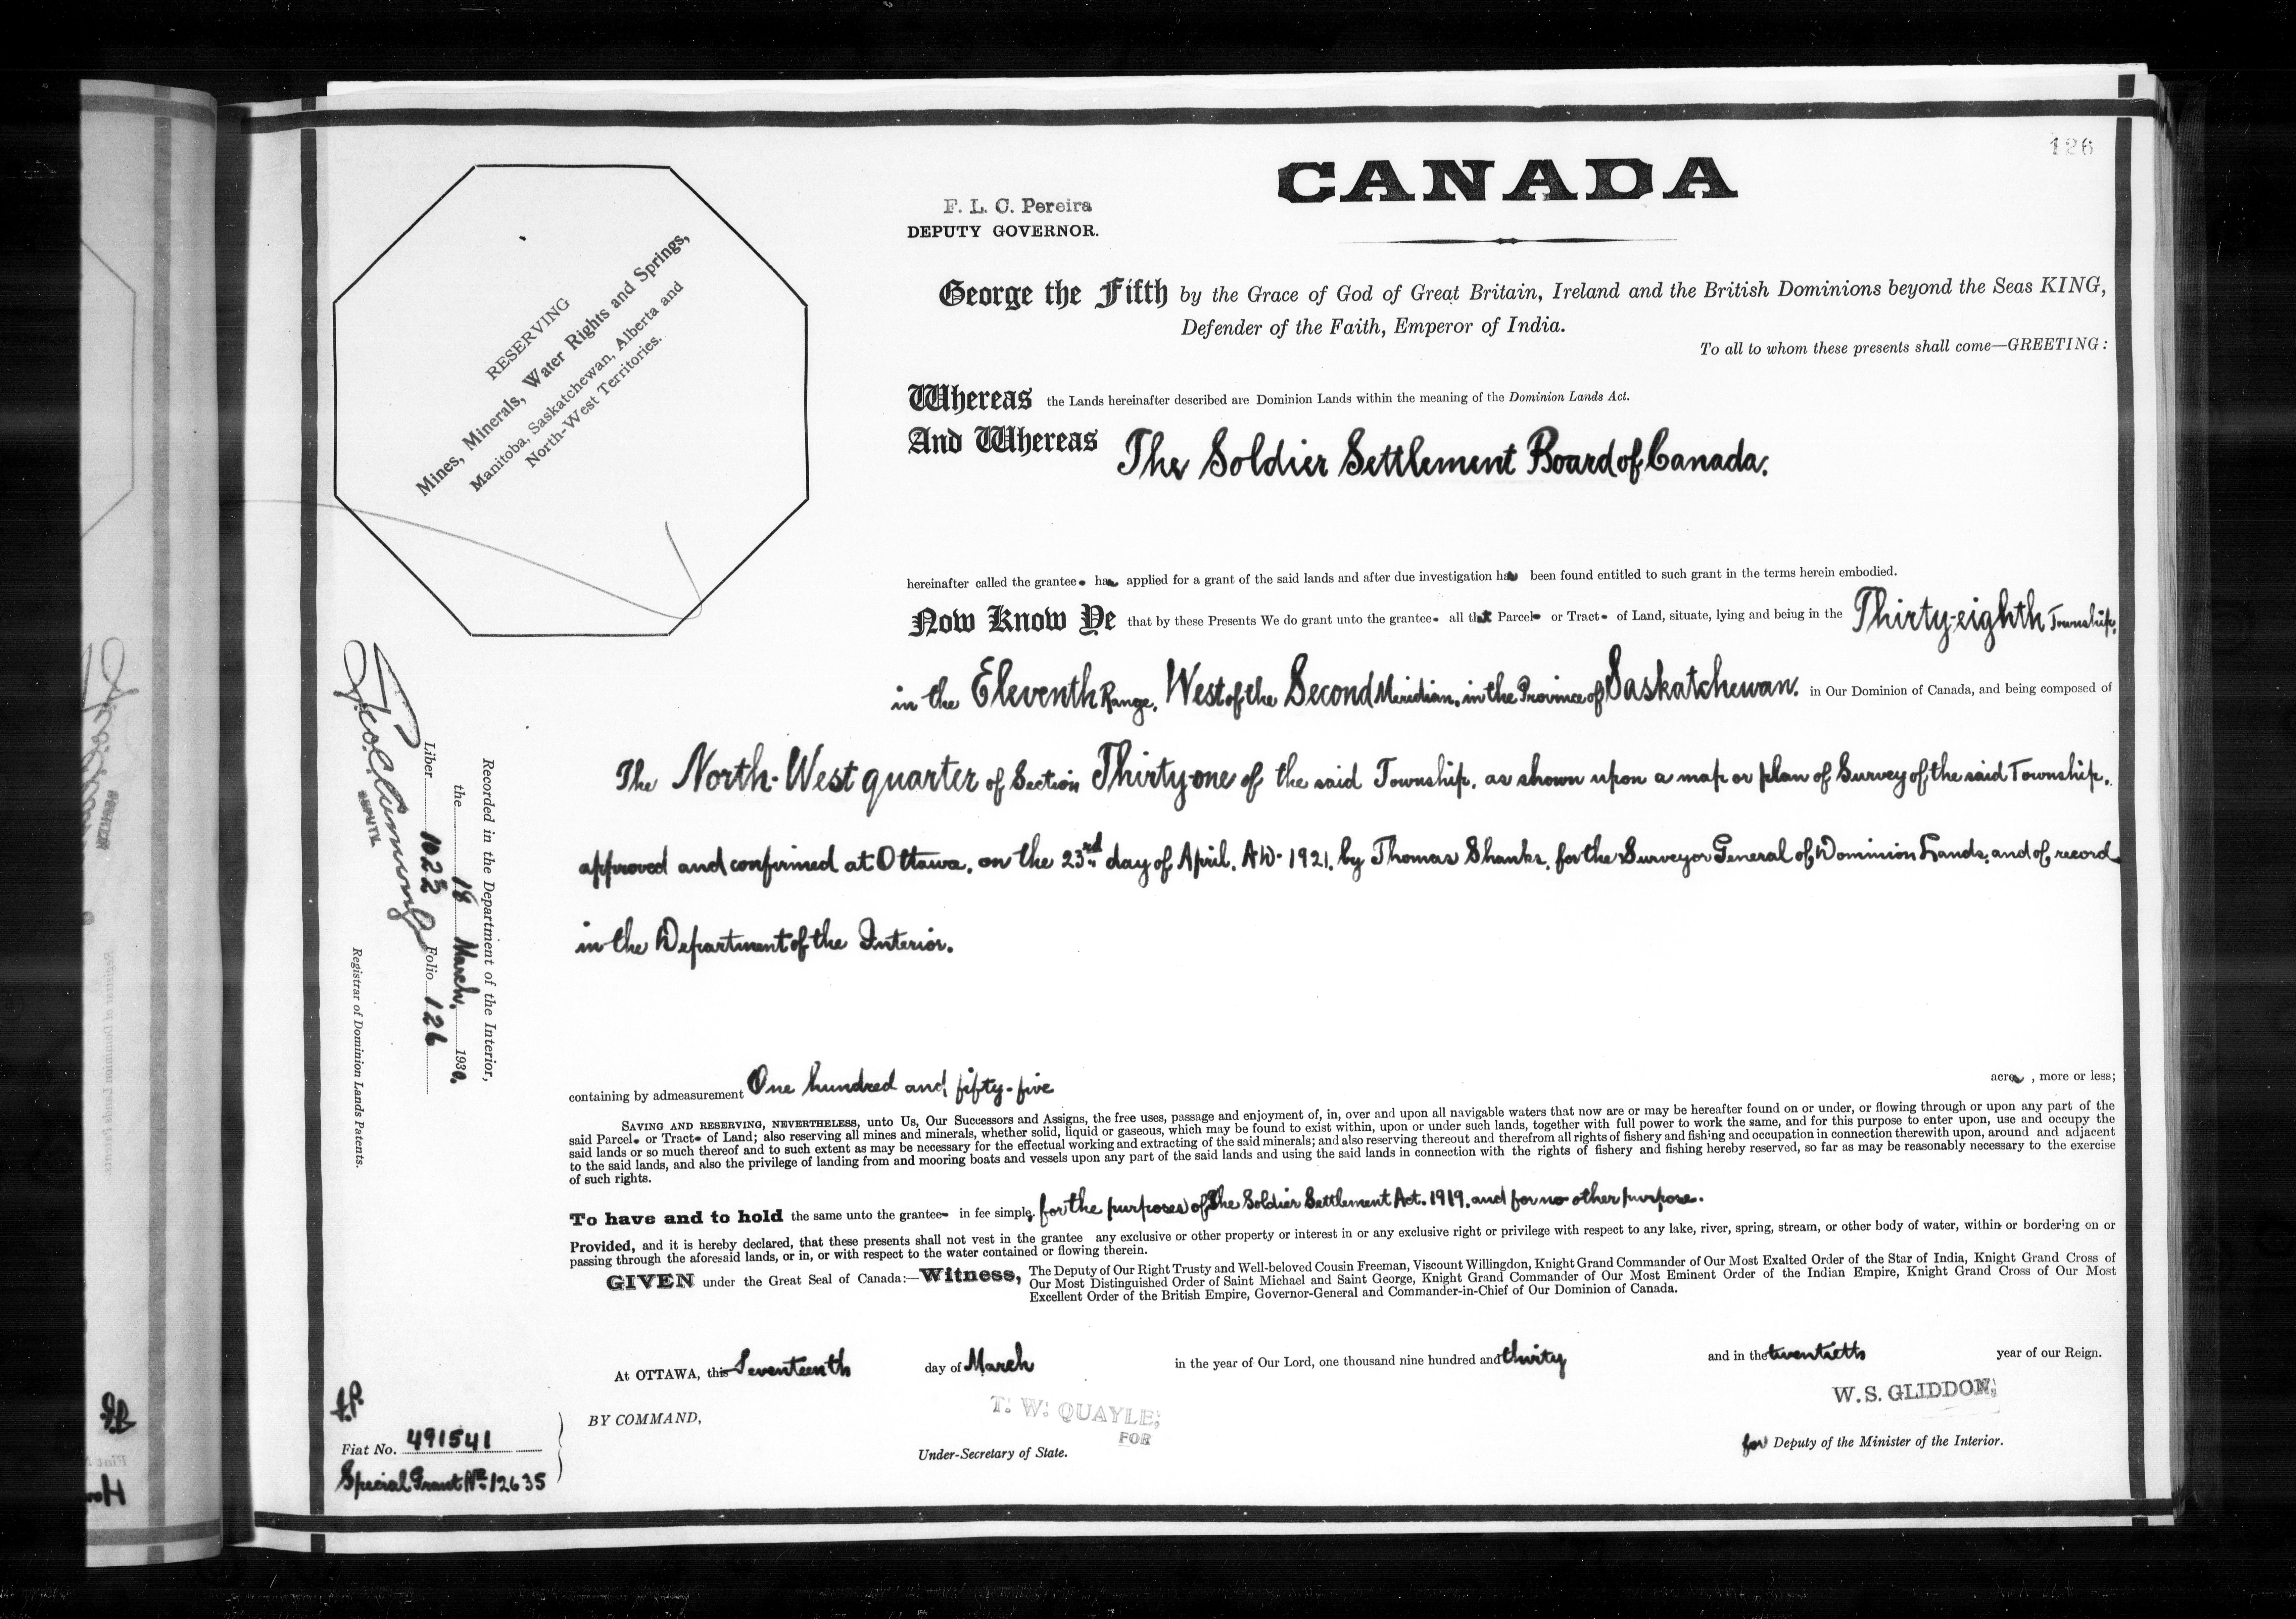 126
CANADA
F. L. C. Pereira
DEPUTY GOVERNOR.
RESERVING
Mines, Minerals, Water Rights and Springs,
Manitoba, Saskatchewan, Alberta and
North-West Territories.
George the Fifth by the Grace of God of Great Britain, Ireland and the British Dominions beyond the Seas KING,
Defender of the Faith, Emperor of India.
To all to whom these presents shall come—GREETING:
Whereas the Lands hereinafter described are Dominion Lands within the meaning of the Dominion Lands Act.
And Whereas The Soldier Settlement Board of Canada.
hereinafter called the grantee has applied for a grant of the said lands and after due investigation has been found entitled to such grant in the terms herein embodied.
Now Know Ye that by these Presents We do grant unto the grantee all that Parcel or Tract of Land, situate, lying and being in the Thirty-eighth Township,
in the Eleventh Range, West of the Second Meridian, in the Province of Saskatchewan. in Our Dominion of Canada, and being composed of
The North-West quarter of Section Thirty-one of the said Township, as shown upon a map or plan of Survey of the said Township,
approved and confirmed at Ottawa, on the 23rd day of April, A.D. 1921, by Thomas Shanks, for the Surveyor General of Dominion Lands, and of record
in the Department of the Interior.
Recorded in the Department of the Interior,
the 18 March, 1930.
Liber 1022 Folio 126
DEPUTY
Registrar of Dominion Lands Patents.
containing by admeasurement One hundred and fifty-five acres, more or less;
SAVING AND RESERVING, NEVERTHELESS, unto Us, Our Successors and Assigns, the free uses, passage and enjoyment of, in, over and upon all navigable waters that now are or may be hereafter found on or under, or flowing through or upon any part of the
said Parcel or Tract of Land; also reserving all mines and minerals, whether solid, liquid or gaseous, which may be found to exist within, upon or under such lands, together with full power to work the same, and for this purpose to enter upon, use and occupy the
said lands or so much thereof and to such extent as may be necessary for the effectual working and extracting of the said minerals; and also reserving thereout and therefrom all rights of fishery and fishing and occupation in connection therewith upon, around and adjacent
to the said lands, and also the privilege of landing from and mooring boats and vessels upon any part of the said lands and using the said lands in connection with the rights of fishery and fishing hereby reserved, so far as may be reasonably necessary to the exercise
of such rights.
To have and to hold the same unto the grantee in fee simple, for the purposes of The Soldier Settlement Act. 1919. and for no other purpose.
Provided, and it is hereby declared, that these presents shall not vest in the grantee any exclusive or other property or interest in or any exclusive right or privilege with respect to any lake, river, spring, stream, or other body of water, within or bordering on or
passing through the aforesaid lands, or in, or with respect to the water contained or flowing therein.
GIVEN under the Great Seal of Canada:—Witness, The Deputy of Our Right Trusty and Well-beloved Cousin Freeman, Viscount Willingdon, Knight Grand Commander of Our Most Exalted Order of the Star of India, Knight Grand Cross of
Our Most Distinguished Order of Saint Michael and Saint George, Knight Grand Commander of Our Most Eminent Order of the Indian Empire, Knight Grand Cross of Our Most
Excellent Order of the British Empire, Governor-General and Commander-in-Chief of Our Dominion of Canada.
At OTTAWA, this Seventeenth day of March in the year of Our Lord, one thousand nine hundred and thirty and in the twentieth year of our Reign.
BY COMMAND,
T. W. QUAYLE,
FOR
Under-Secretary of State.
W. S. GLIDDON,
for Deputy of the Minister of the Interior.
Fiat No. 491541
Special Grant No. 12635